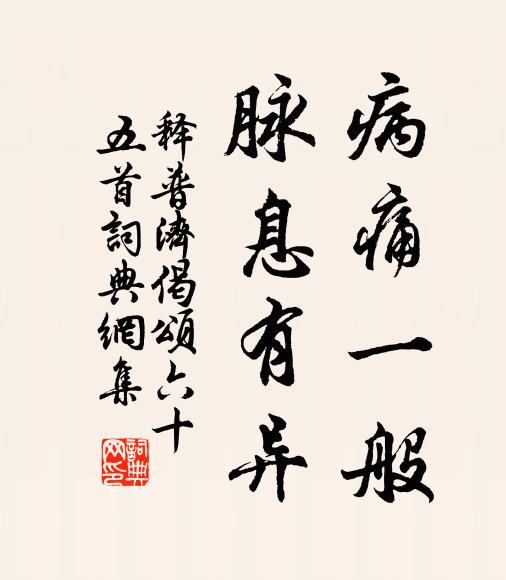 病痛一般
脉息有异
释普濟偈頌六十
五首詞典網集
詞典网印